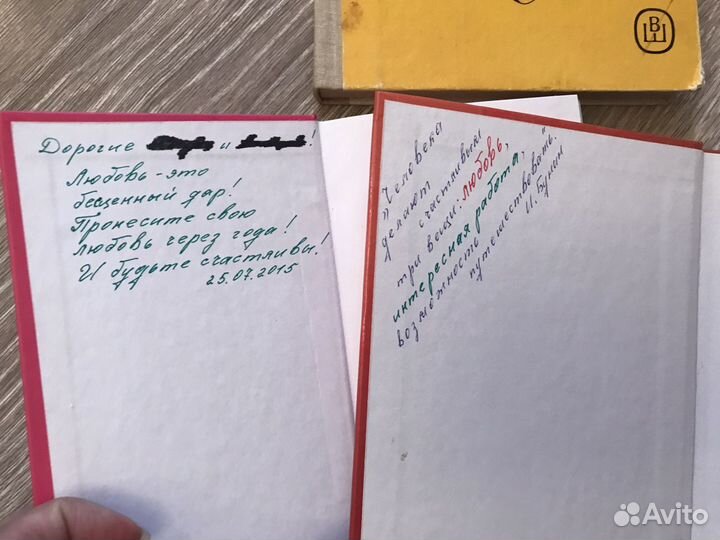 Дорогие и !
Любовь - это
бесценный дар!
Пронесите свою
любовь через года!
И будьте счастливы!
25.07.2015
„Человека
делают счастливым
три вещи: любовь,
интересная работа,
возможность
путешествовать."
И. Бунин
ВШ
Avito